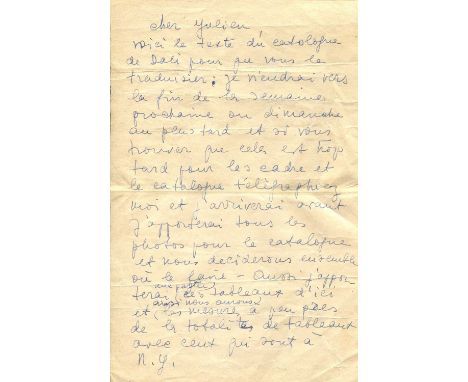 cher Julien
voici le texte du catalogue
de Dali pour que vous le
traduisier; je viendrai vers
la fin de la semaine
prochaine ou dimanche
au plus tard et si vous
trouver que cela est trop
tard pour les cadre et
le catalogue télégraphiez
moi et j'arriverai avant
j'apporterai tous les
photos pour le catalogue
et nous deciderons ensemble
où le faire - Aussi j'appor-
terai une partie des tableaux d'ici
et aussi nous aurons les mesure a peu près
de la totalites de tableaux
avec ceux qui sont à
N.Y.